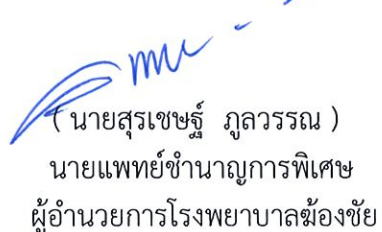 ( นายสุรเชษฐ์ ภูลวรรณ )
นายแพทย์ชำนาญการพิเศษ
ผู้อำนวยการโรงพยาบาลฆ้องชัย